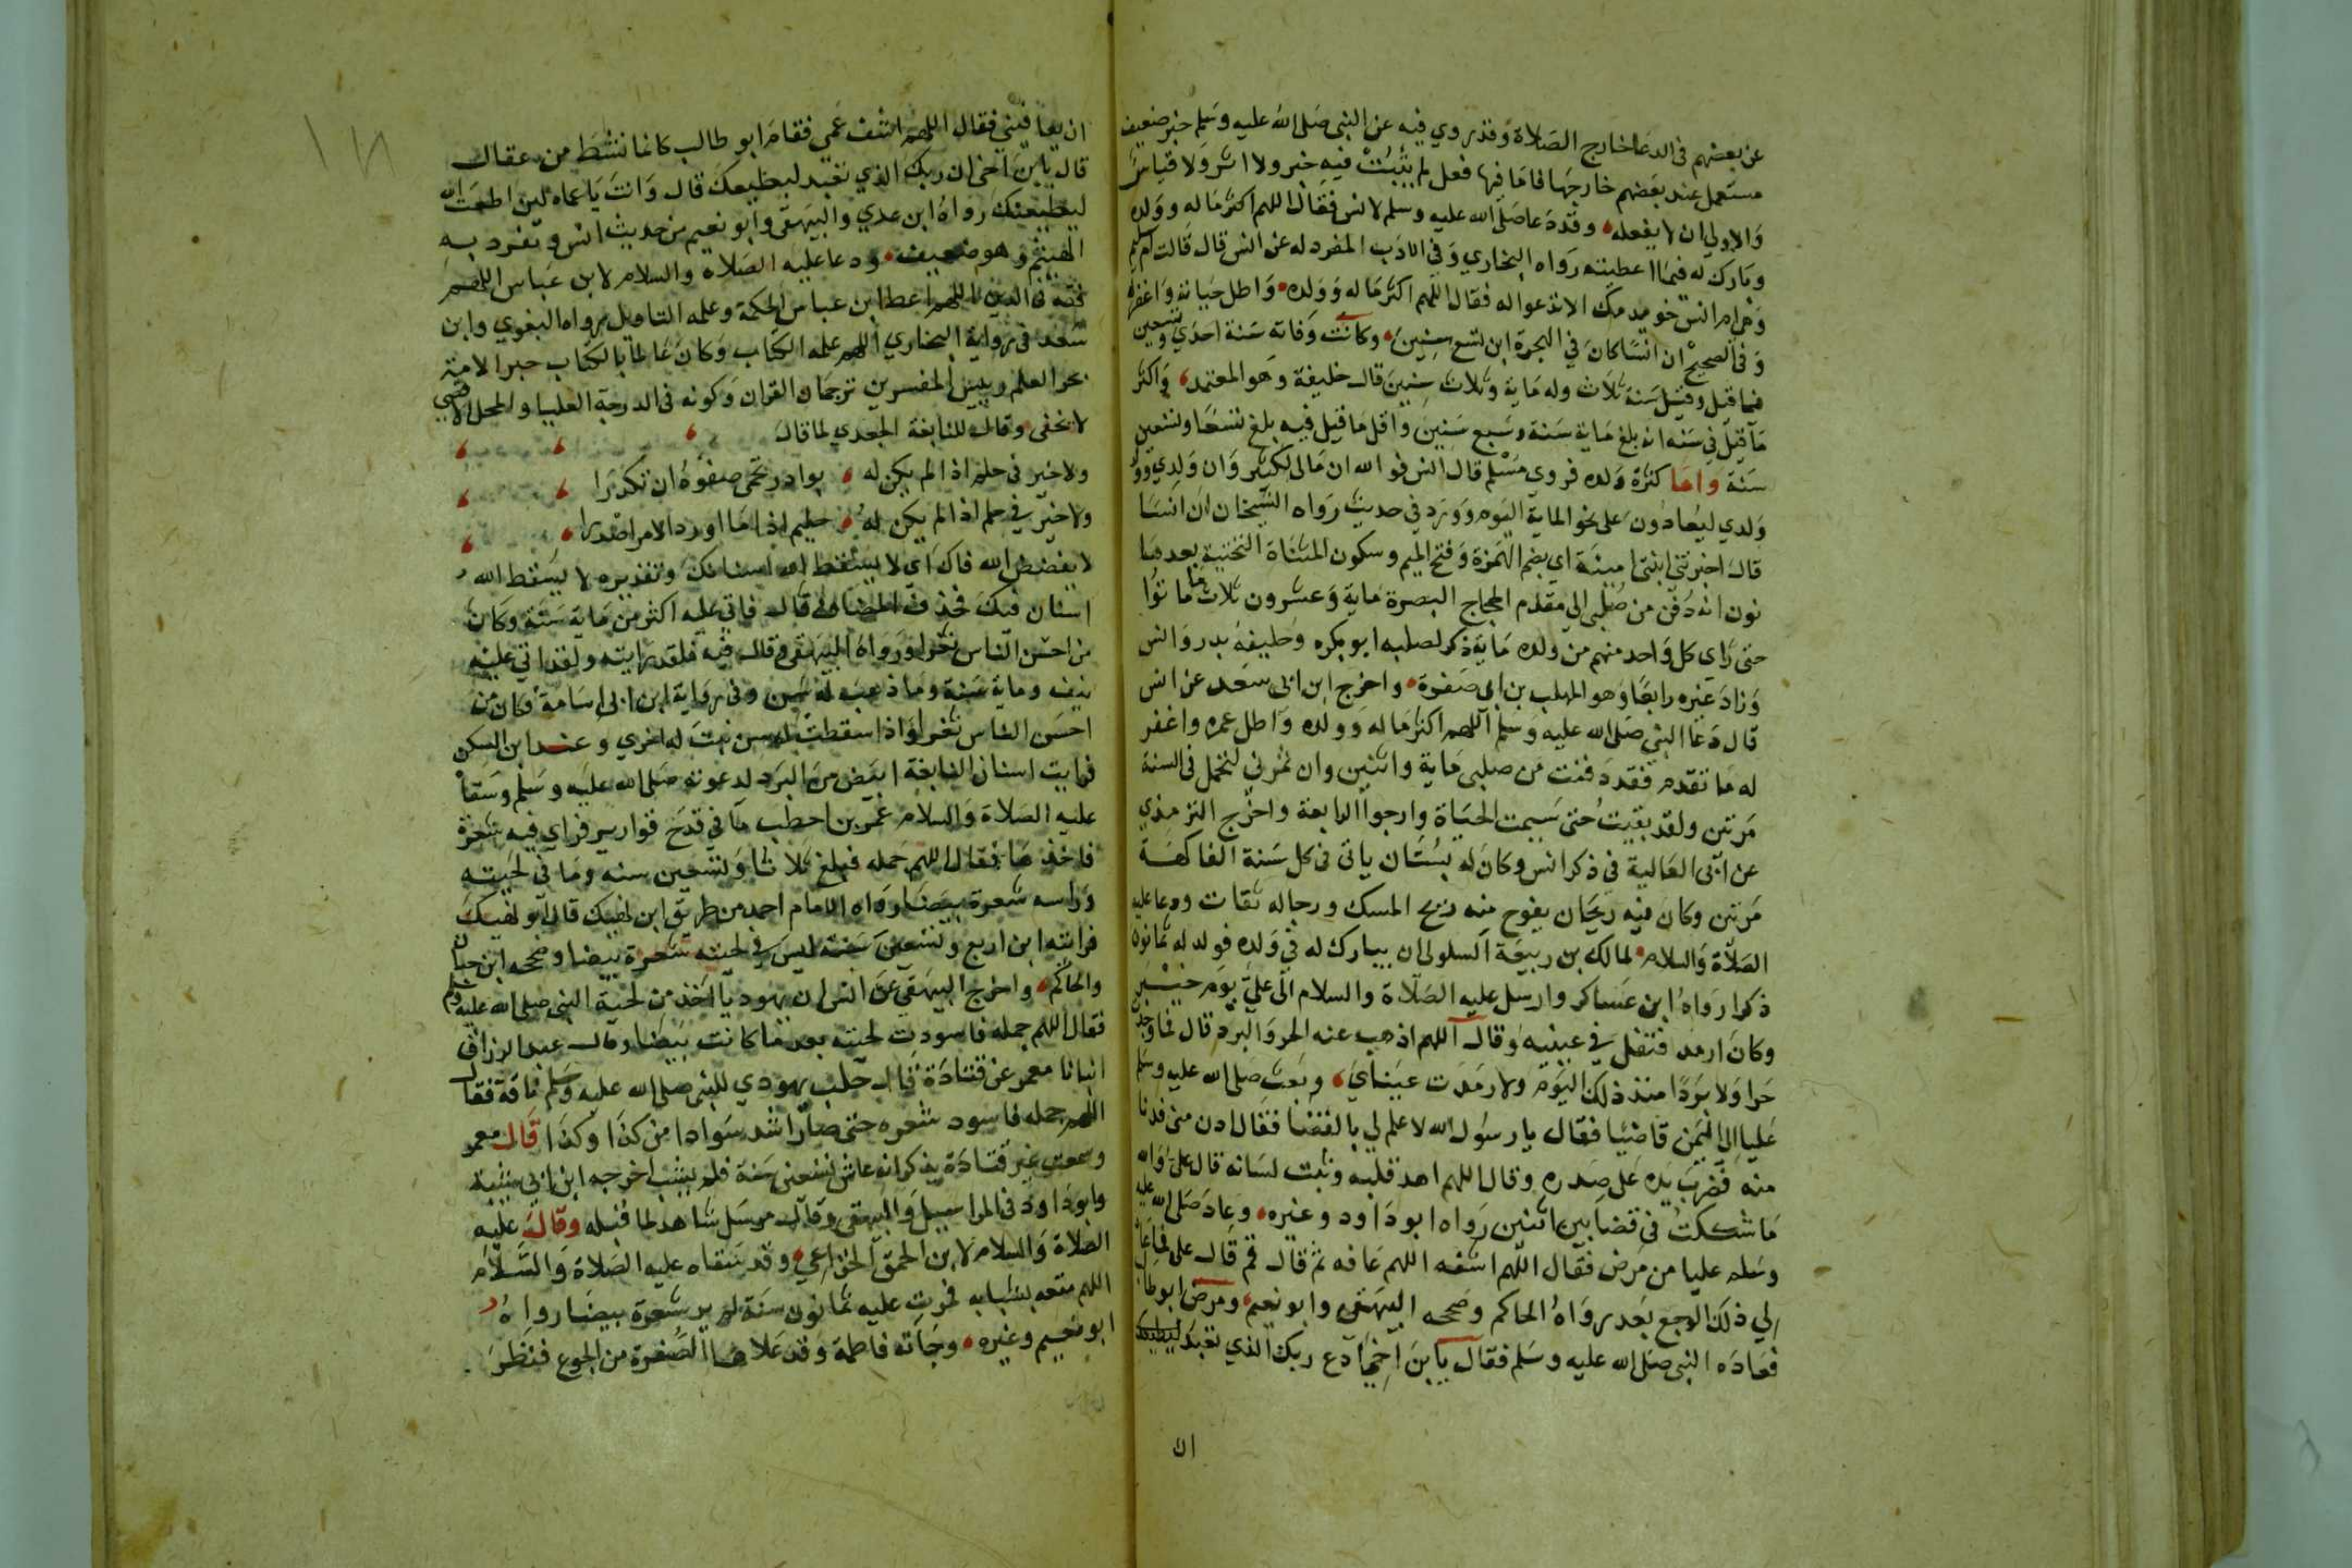 عن بعضهم في الدعا خارج الصلاة وقد روي فيه عن النبي صلى الله عليه وسلم خبر ضعيف
مستعمل عند بعضهم خارجها فاما فيها فعل لم يثبت فيه خبر ولا اثر ولا قياس
والاولى ان لا يفعله وقد دعا صلى الله عليه وسلم لانس فقال اللهم اكثر ماله وولده
وبارك له فيما اعطيته رواه البخاري وفي الادب المفرد له عن انس قال قالت ام سليم
وهي ام انس خويدمك الا تدعوا له فقال اللهم اكثر ماله وولده واطل حياته واغفر له
وفي الصحيح ان انسا كان في الهجرة ابن تسع سنين وكانت وفاته سنة احدي وتسعين
فيما قيل وقيل سنة ثلاث وله ماية وثلاث سنين قال خليفة وهو المعتمد واكثر
ما قيل في سنه انه بلغ ماية سنة وسبع سنين واقل ما قيل فيه بلغ تسعا وتسعين
سنة واما كثرة ولده فروي مسلم قال انس فو الله ان مالي لكثير وان ولدي وولد
ولدي ليعادون على نحو الماية اليوم وورد في حديث رواه الشيخان ان انسا
قال اخبرتني ابنتي امينة اي بضم الهمزة وفتح الميم وسكون المثناة التحتية بعدها
نون انه دفن من صلبي الي مقدم الحجاج البصرة ماية وعشرون ثلاث ما ماتوا
حتى راي كل واحد منهم من ولده ماية ذكر لصلبه ابو بكره وخليفة بدر وانس
وزاد غيره رابعا وهو المهلب بن ابي صفرة واخرج ابن ابي سعد عن انس
قال دعا النبي صلى الله عليه وسلم اللهم اكثر ماله وولده واطل عمره واغفر
له ما تقدم فقد دفنت من صلبي ماية واثنين وان ثمرتي لتحمل في السنة
مرتين ولقد بقيت حتى سيمت الحياة وارجوا الرابعة واخرج الترمذي
عن ابي العالية في ذكر انس وكان له بستان ياتي في كل سنة الفاكهة
مرتين وكان فيه ريحان يفوح منه ريح المسك ورجاله ثقات ودعا عليه
الصلاة والسلام لمالك بن ربيعة السلولي ان يبارك له في ولده فولد له ثمانون
ذكرا رواه ابن عساكر وارسل عليه الصلاة والسلام الى علي يوم خيبر
وكان ارمد فتفل في عينيه وقال اللهم اذهب عنه الحر والبرد قال فما وجدت
حرا ولا بردا منذ ذلك اليوم ولا رمدت عيناي وبعث صلى الله عليه وسلم
عليا الى اليمن قاضيا فقال يا رسول الله لا علم لي بالقضا فقال ادن مني فدنا
منه فضرب يده على صدره وقال اللهم اهد قلبه وثبت لسانه قال علي والله
ما شككت في قضا بين اثنين رواه ابو داود وغيره وعاد صلى الله عليه
وسلم عليا من مرض فقال اللهم اشفه اللهم عافه ثم قال قم قال علي فما عاد
الي ذلك الوجع بعد رواه الحاكم وصححه البيهقي وابو نعيم ومرض ابو طالب
فعاده النبي صلى الله عليه وسلم فقال يا ابن اخي ادع ربك الذي تعبد
ان
ان يعافيني فقال اللهم اشف عمي فقام ابو طالب كانما نشط من عقال
قال يا ابن اخي ان ربك الذي تعبد ليطيعك قال وانت يا عماه لين اطعت الله
ليطيعنك رواه ابن عدي والبيهقي وابو نعيم من حديث انس وتفرد به
الهيثم وهو ضعيف ودعا عليه الصلاة والسلام لابن عباس اللهم
فقهه في الدين اللهم اعط ابن عباس الحكمة وعلمه التاويل رواه البغوي وابن
سعد في رواية البخاري اللهم علمه الكتاب وكان عالما بالكتاب حبر الامة
بحر العلم رييس المفسرين ترجمان القران وكونه في الدرجة العليا والمحل الاقصي
لا يخفى وقال للنابغة الجعدي لما قال
ولا خير في حلم اذا لم يكن له بوادر تحمي صفوه ان تكدرا
ولا خير في حلم اذا لم يكن له حليم اذا ما اورد الامر اصدرا
لا يفضض الله فاك اي لا يسقط الله اسنانك وتقديره لا يسقط الله
اسنان فيك فحذف المضاف قال فاتي عليه اكثر من ماية سنة وكان
من احسن الناس ثغرا ورواه البيهقي وقال فيه فلقد رايته ولقد اتي عليه
نيف وماية سنة وما ذهب له سن وفي رواية ابن ابي اسامة فكان من
احسن الناس ثغرا واذا سقطت له سن نبت له اخري وعند ابن السكن
فرايت اسنان النابغة ابيض من البرد لدعوته صلى الله عليه وسلم وسقا
عليه الصلاة والسلام عمر بن اخطب ما في قدح قوارير فراي فيه شعرة
فاخذها فقال اللهم جمله فبلغ ثلاثا وتسعين سنه وما في لحيته
وراسه شعرة بيضا رواه الامام احمد من طريق ابن نهيك قال ابو نهيك
فرايته ابن اربع وتسعين سنة ليس في لحيته شعرة بيضا وصححه ابن حبان
والحاكم واخرج البيهقي عن انس ان يهوديا اخذ من لحية النبي صلى الله عليه وسلم
فقال اللهم جمله فاسودت لحيته بعد ما كانت بيضا وقال عبد الرزاق
انبانا معمر عن قتادة قال حلب يهودي للنبي صلى الله عليه وسلم ناقة فقال
اللهم جمله فاسود شعره حتى صار اشد سوادا من كذا وكذا قال معمر
وسمعت غير قتادة يذكر انه عاش تسعين سنة فلم يشب اخرجه ابن ابي شيبة
وابو داود في المراسيل والبيهقي وقال مرسل شاهد لما قبله وقال عليه
الصلاة والسلام لابن الحمق الخزاعي وقد سقاه عليه الصلاة والسلام
اللهم متعه بشبابه فمرت عليه ثمانون سنة لم ير شعرة بيضا رواه
ابو نعيم وغيره وجاته فاطمة وقد علاها الصفرة من الجوع فنظر